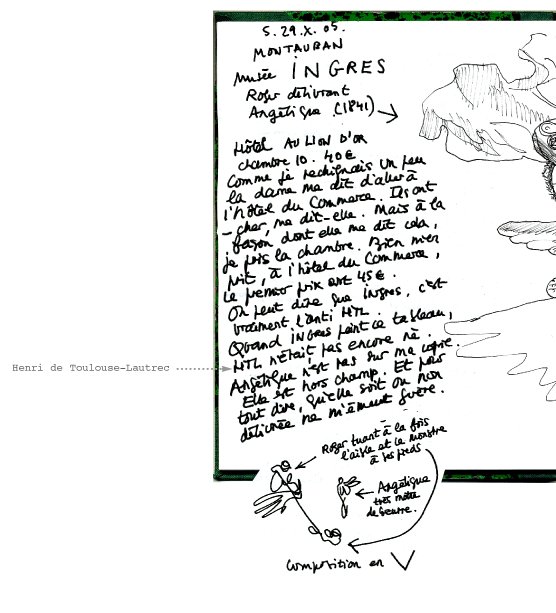 S. 29.X.05.
MONTAUBAN
Musée INGRES
Roger délivrant
Angélique (1841)
Hôtel AU LION D'OR
chambre 10. 40€
Comme je rechignais un peu
la dame me dit d'aller à
l'hôtel du Commerce. Ils ont
cher, me dit-elle. Mais à la
façon dont elle me dit cela,
je pris la chambre. Bien m'en
prit, à l'hôtel du Commerce,
le premier prix est 45€.
On peut dire que Ingres, c'est
vraiment l'anti HTL.
Quand INGRES peint ce tableau,
HTL n'était pas encore né.
Henri de Toulouse-Lautrec
Angélique n'est pas sur ma copie.
Elle est hors champ. Et pour
tout dire, qu'elle soit ou non
délivrée ne m'émeut guère.
Roger tuant à la fois
l'aigle et le monstre
à ses pieds
Angélique
très motte
de beurre.
Composition en V